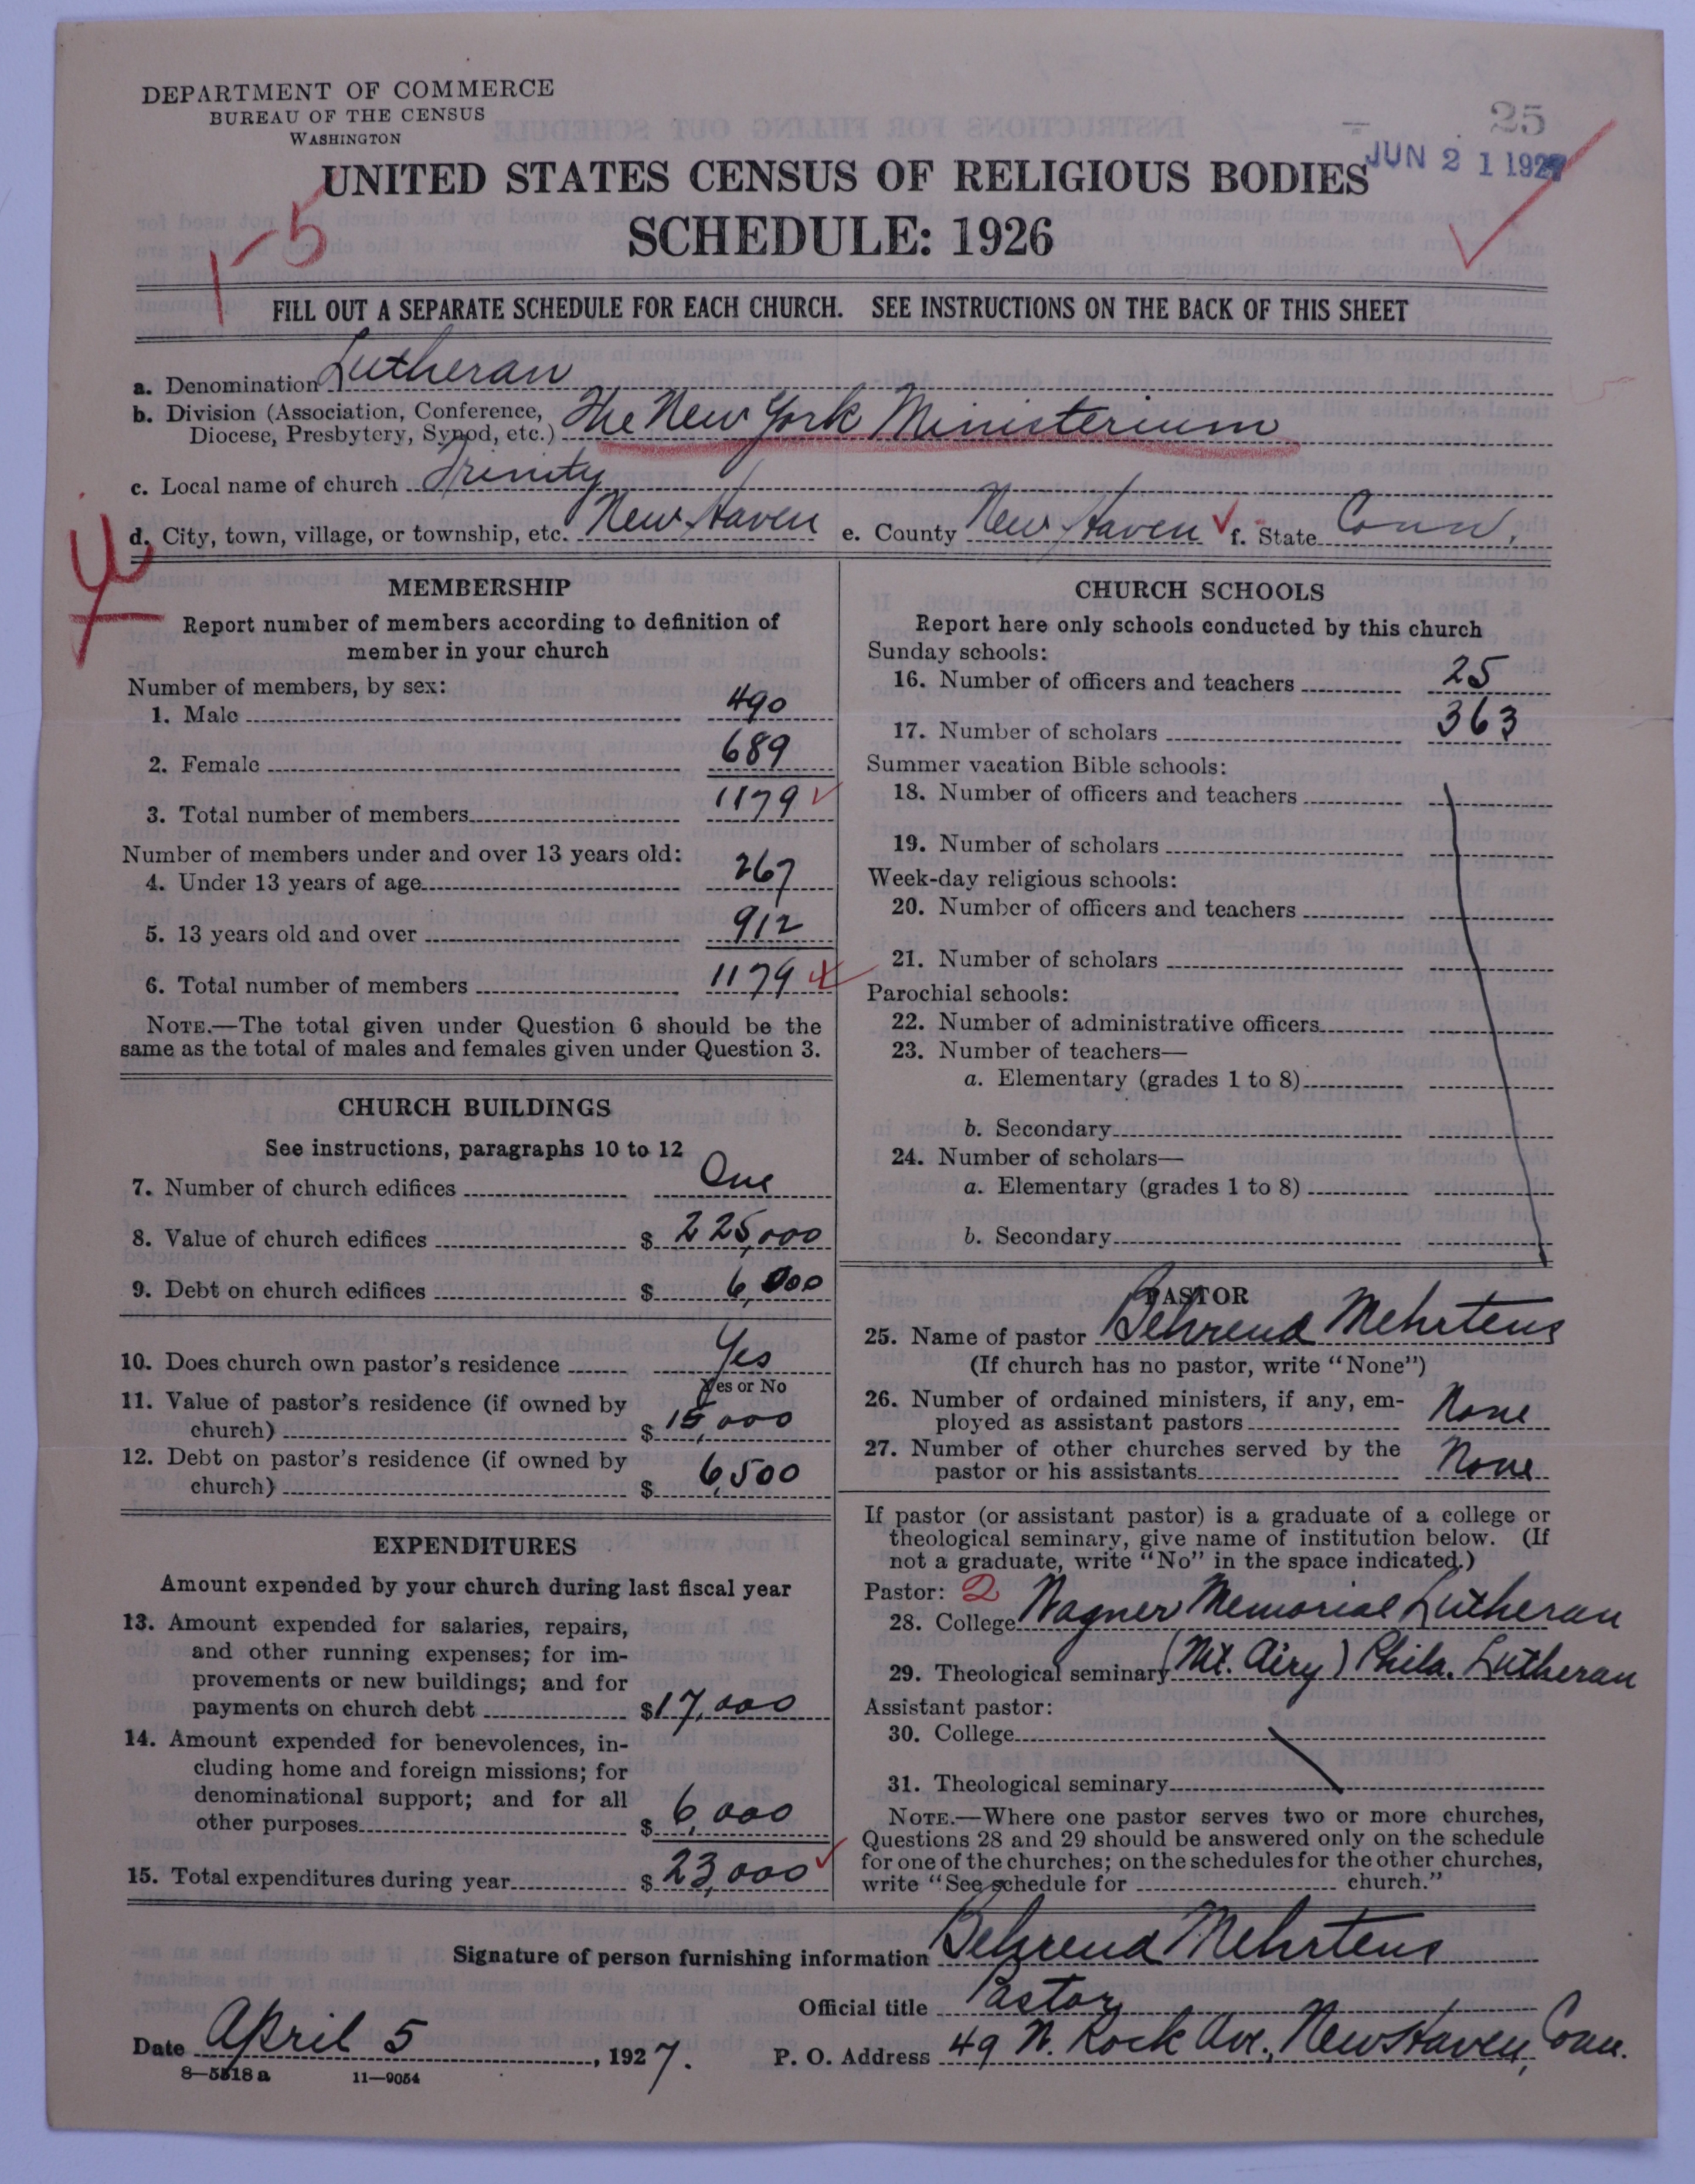 DEPARTMENT OF COMMERCE
BUREAU OF THE CENSUS
WASHINGTON
25
JUN 21 1927
UNITED STATES CENSUS OF RELIGIOUS BODIES
1-5
SCHEDULE: 1926
FILL OUT A SEPARATE SCHEDULE FOR EACH CHURCH. SEE INSTRUCTIONS ON THE BACK OF THIS SHEET
a. Denomination Lutheran
b. Division (Association, Conference, Diocese, Presbytery, Synod, etc.) The New York Ministerium
c. Local name of church Trinity
d. City, town, village, or township, etc. New Haven e. County New Haven f. State Conn.
MEMBERSHIP
Report number of members according to definition of
member in your church
Number of members, by sex:
1. Male 490
2. Female 689
3. Total number of members 1179
Number of members under and over 13 years old:
4. Under 13 years of age 267
5. 13 years old and over 912
6. Total number of members 1179
NOTE.—The total given under Question 6 should be the
same as the total of males and females given under Question 3.
CHURCH BUILDINGS
See instructions, paragraphs 10 to 12
7. Number of church edifices One
8. Value of church edifices $ 225,000
9. Debt on church edifices $ 6,000
10. Does church own pastor's residence Yes
Yes or No
11. Value of pastor's residence (if owned by
church) $ 15,000
12. Debt on pastor's residence (if owned by
church) $ 6,500
EXPENDITURES
Amount expended by your church during last fiscal year
13. Amount expended for salaries, repairs,
and other running expenses; for im-
provements or new buildings; and for
payments on church debt $17,000
14. Amount expended for benevolences, in-
cluding home and foreign missions; for
denominational support; and for all
other purposes $ 6,000
15. Total expenditures during year $ 23,000
CHURCH SCHOOLS
Report here only schools conducted by this church
Sunday schools:
16. Number of officers and teachers 25
17. Number of scholars 363
Summer vacation Bible schools:
18. Number of officers and teachers
19. Number of scholars
Week-day religious schools:
20. Number of officers and teachers
21. Number of scholars
Parochial schools:
22. Number of administrative officers
23. Number of teachers—
a. Elementary (grades 1 to 8)
b. Secondary
24. Number of scholars—
a. Elementary (grades 1 to 8)
b. Secondary
PASTOR
25. Name of pastor Behrend Mehrtens
(If church has no pastor, write "None")
26. Number of ordained ministers, if any, em-
ployed as assistant pastors None
27. Number of other churches served by the
pastor or his assistants None
If pastor (or assistant pastor) is a graduate of a college or
theological seminary, give name of institution below. (If
not a graduate, write "No" in the space indicated.)
Pastor: 2
28. College Wagner Memorial Lutheran
29. Theological seminary (Mt. Airy) Phila. Lutheran
Assistant pastor:
30. College
31. Theological seminary
NOTE.—Where one pastor serves two or more churches,
Questions 28 and 29 should be answered only on the schedule
for one of the churches; on the schedules for the other churches,
write "See schedule for church."
Signature of person furnishing information Behrend Mehrtens
Official title Pastor
Date April 5, 1927. P. O. Address 49 N. Rock Ave., New Haven, Conn.
8—5518a 11—9054